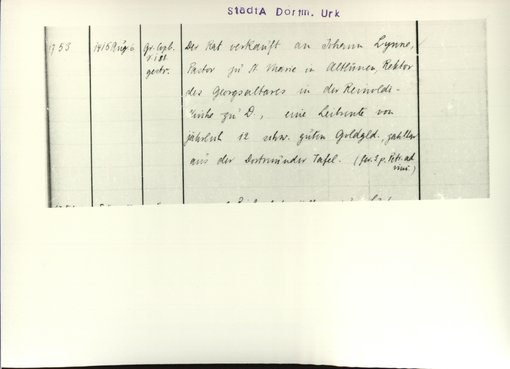 StadtA Dortm. Urk
1755 1415 Aug. 6 Gr. Copb. Der Rat verkauft an Johann Lynne,
Pastor zu St Marie in Altlünen, Rektor
gestr. des Georgsaltares in der Reinoldi-
kirche zu D., eine Leibrente von
jährlich 12 schw. guten Goldgld., zahlbar
aus der Dortmunder Tafel. (fer. 3 p. Petr. ad
vinc.)